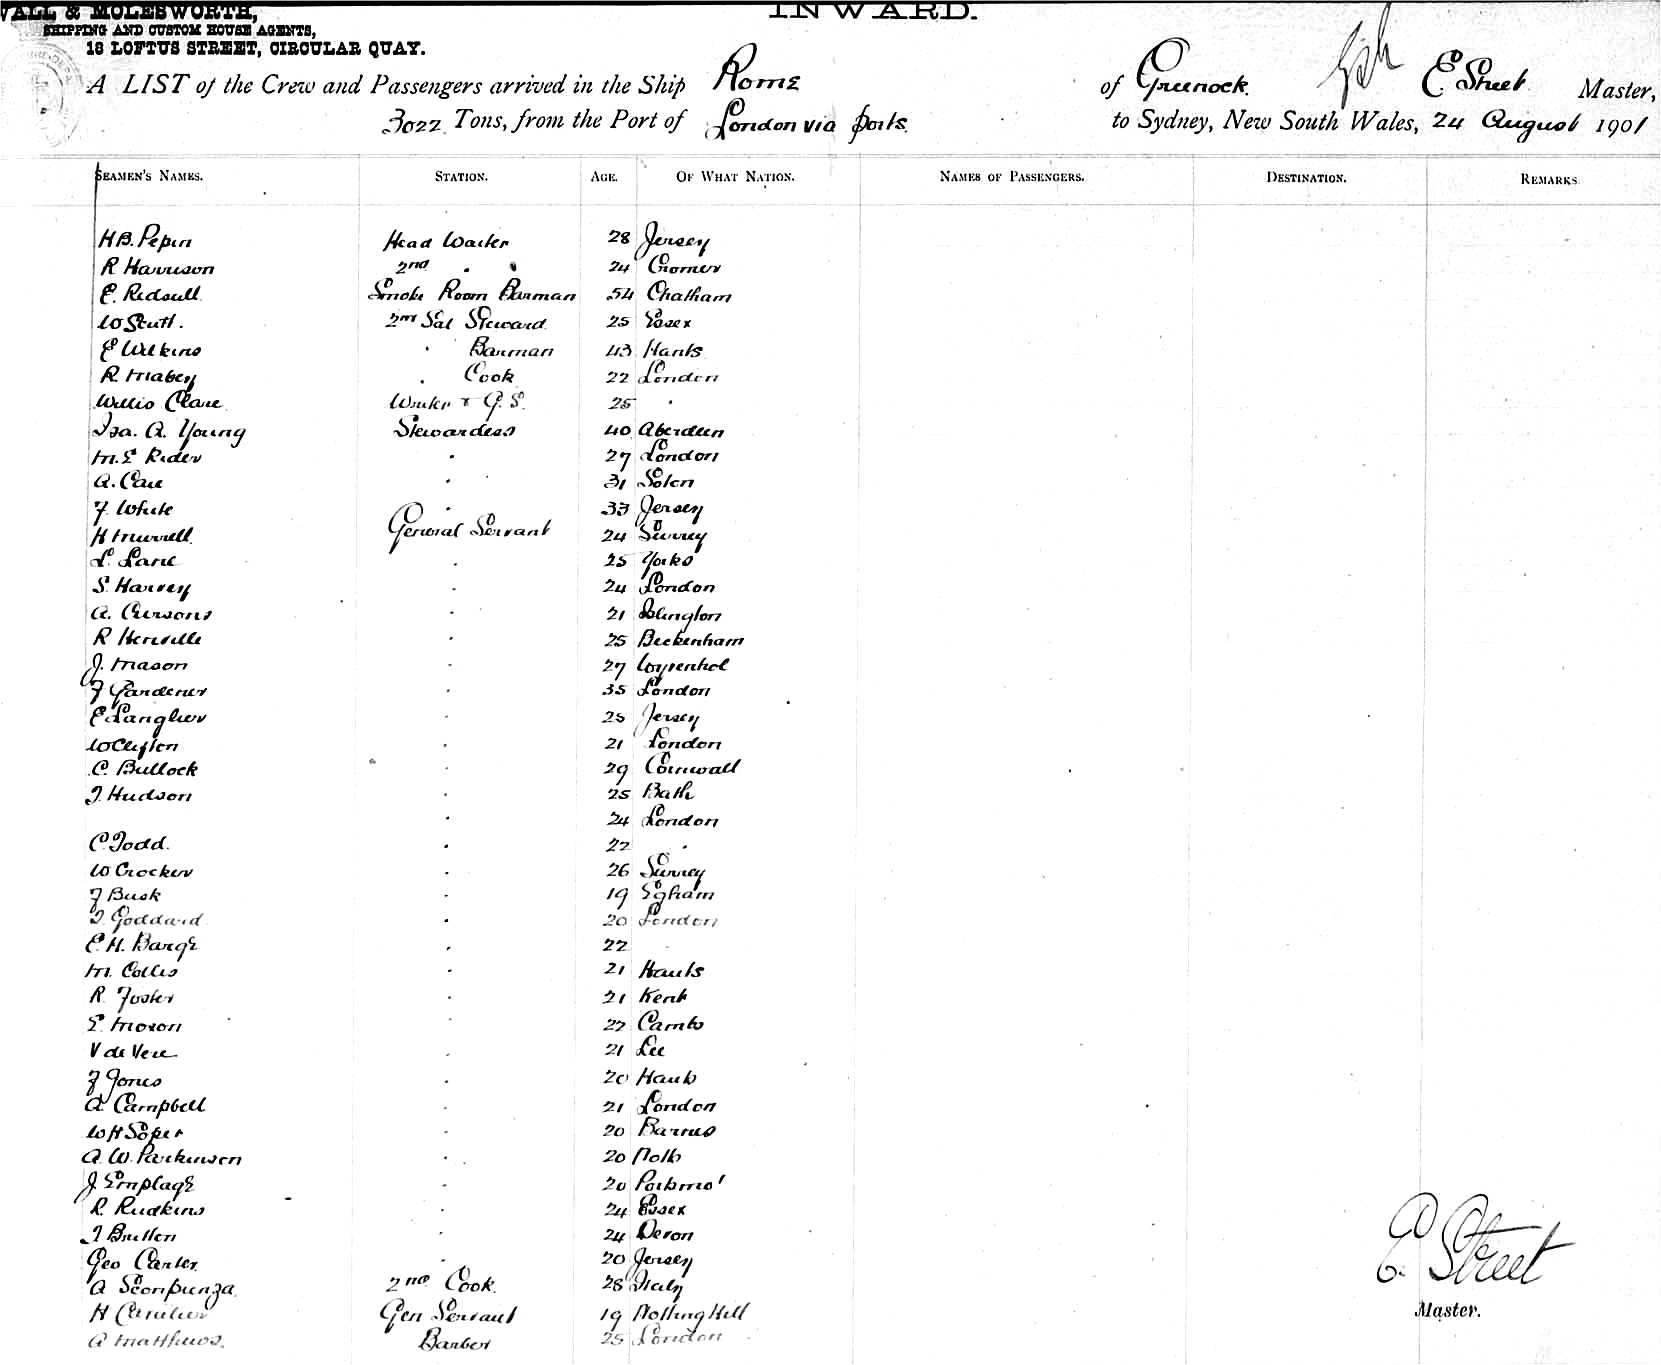 WALL & MOLESWORTH,
SHIPPING AND CUSTOM HOUSE AGENTS,
18 LOFTUS STREET, CIRCULAR QUAY.
INWARD.
A LIST of the Crew and Passengers arrived in the Ship Rome of Greenock. E. Street Master,
3022 Tons, from the Port of London via ports. to Sydney, New South Wales, 24 August 1901
SEAMEN'S NAMES. STATION. AGE. OF WHAT NATION. NAMES OF PASSENGERS. DESTINATION. REMARKS.
H B. Pepin Head Waiter 28 Jersey
R Harrison 2nd " " 24 Cromer
E. Redsull Smoke Room Barman 54 Chatham
W Stutt. 2nd Sal Steward 25 Essex
E Wilkins " Barman 43 Hants
R Mabey " Cook 22 London
Willis Clare Waiter & G.S. 25 "
Isa. A. Young Stewardess 40 Aberdeen
M. E Rider " 27 London
A. Care " 31 Solen
F. White " 33 Jersey
H Murrell General Servant 24 Surrey
L. Lane " 25 Yorks
S. Harvey " 24 London
A. Cursons " 21 Islington
R Henville " 25 Beckenham
J. Mason " 27
F Gardener " 35 London
E Langlier " 25 Jersey
W Clifton " 21 London
C. Bullock " 29 Cornwall
T. Hudson " 25 Bath
" 24 London
C. Todd. " 22 "
W Crocker " 26 Surrey
F Busk " 19 Egham
T Goddard " 20 London
E. H. Barge " 22 "
M. Collis " 21 Hants
R. Foster " 21 Kent
E. Moxon " 22 Cambs
V de Vere " 21 Lee
F Jones " 20 Hants
A. Campbell " 21 London
W H Soper " 20 Barnes
A. W. Parkinson " 20 Notts
J. Emplage " 20 Portsmo'
R. Rudkins " 24 Essex
T Britton " 24 Devon
Geo Carter " 20 Jersey
A Scorpunza 2nd Cook. 28 Italy
H Gen Servant 19 Notting Hill
A Matthews. Barber 25 London
E. Street
Master.